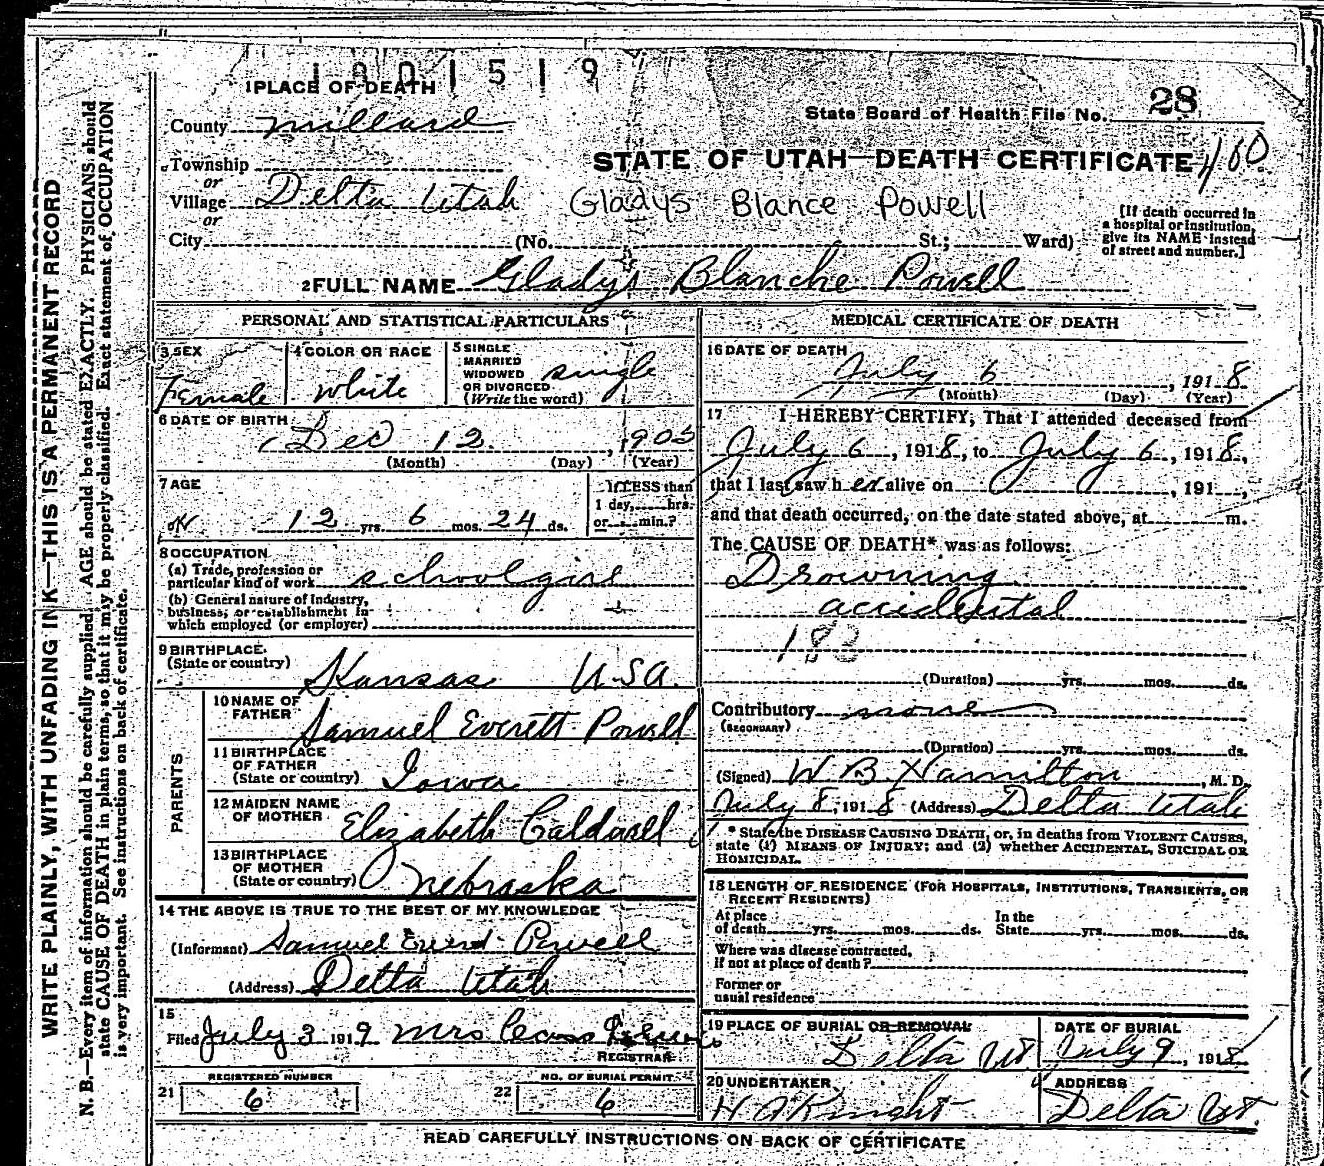 1 PLACE OF DEATH
1901519
County Millard
State Board of Health File No. 28
Township
or
STATE OF UTAH—DEATH CERTIFICATE 460
Village Delta Utah
Gladys Blance Powell
or
City (No. St.; Ward)
[If death occurred in
a hospital or institution,
give its NAME instead
of street and number.]
2 FULL NAME Gladys Blanche Powell
PERSONAL AND STATISTICAL PARTICULARS
3 SEX
Female
4 COLOR OR RACE
White
5 SINGLE
MARRIED
WIDOWED
OR DIVORCED
(Write the word)
single
6 DATE OF BIRTH
Dec 12, 1905
(Month) (Day) (Year)
7 AGE
12 yrs. 6 mos. 24 ds.
If LESS than
1 day, hrs.
or min.?
8 OCCUPATION
(a) Trade, profession or
particular kind of work schoolgirl
(b) General nature of Industry,
business, or establishment in
which employed (or employer)
9 BIRTHPLACE
(State or country) Kansas USA.
PARENTS
10 NAME OF
FATHER Samuel Everett Powell
11 BIRTHPLACE
OF FATHER
(State or country) Iowa
12 MAIDEN NAME
OF MOTHER Elizabeth Caldwell
13 BIRTHPLACE
OF MOTHER
(State or country) Nebraska
14 THE ABOVE IS TRUE TO THE BEST OF MY KNOWLEDGE
(Informant) Samuel Powell
(Address) Delta Utah
15
Filed July 3 1919 Mrs
REGISTRAR
REGISTERED NUMBER
21 6
NO. OF BURIAL PERMIT
22 6
MEDICAL CERTIFICATE OF DEATH
16 DATE OF DEATH
July 6, 1918
(Month) (Day) (Year)
17 I HEREBY CERTIFY, That I attended deceased from
July 6, 1918, to July 6, 1918,
that I last saw her alive on , 191 ,
and that death occurred, on the date stated above, at m.
The CAUSE OF DEATH* was as follows:
Drowning
accidental
(Duration) yrs. mos. ds.
Contributory none
(SECONDARY)
(Duration) yrs. mos. ds.
(Signed) W B Hamilton, M. D.
July 8, 1918 (Address) Delta Utah
* State the DISEASE CAUSING DEATH, or, in deaths from VIOLENT CAUSES,
state (1) MEANS OF INJURY; and (2) whether ACCIDENTAL, SUICIDAL OR
HOMICIDAL.
18 LENGTH OF RESIDENCE (FOR HOSPITALS, INSTITUTIONS, TRANSIENTS, OR
RECENT RESIDENTS)
At place
of death yrs. mos. ds.
In the
State yrs. mos. ds.
Where was disease contracted,
If not at place of death?
Former or
usual residence
19 PLACE OF BURIAL OR REMOVAL
Delta Ut
DATE OF BURIAL
July 9, 1918
20 UNDERTAKER
Knight
ADDRESS
Delta Ut.
READ CAREFULLY INSTRUCTIONS ON BACK OF CERTIFICATE
WRITE PLAINLY, WITH UNFADING INK—THIS IS A PERMANENT RECORD
N. B.—Every item of information should be carefully supplied. AGE should be stated EXACTLY. PHYSICIANS should
state CAUSE OF DEATH in plain terms, so that it may be properly classified. Exact statement of OCCUPATION
is very important. See instructions on back of certificate.